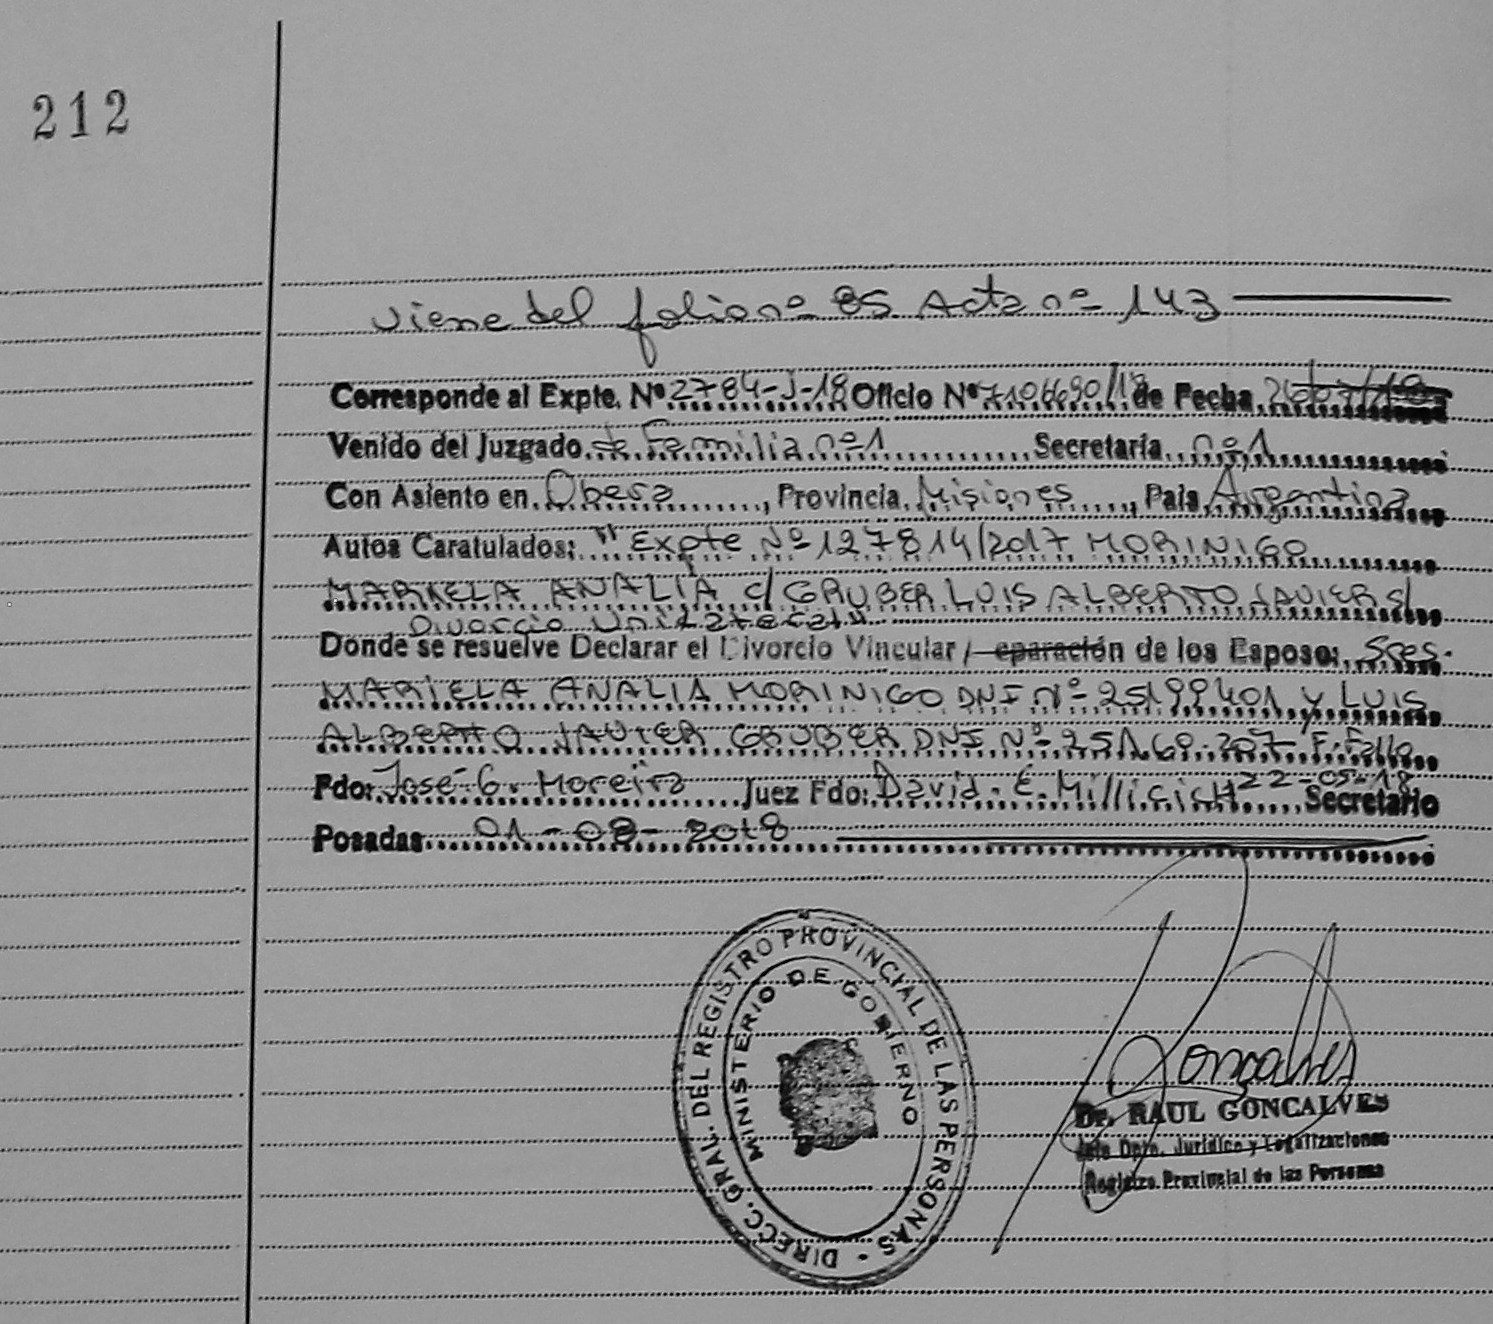 212
viene del folio nº 85 Acta nº 143
Corresponde al Expte. Nº 2784-J-18 Oficio Nº 7106690/18 de Fecha 26/07/18
Venido del Juzgado de Familia nº 1 Secretaria nº 1
Con Asiento en Obera, Provincia Misiones, Pais Argentina
Autos Caratulados: "Expte Nº 127814/2017 MORINIGO
MARIELA ANALIA c/ GRUBER LUIS ALBERTO JAVIER s/
Divorcio Unilateral"
Donde se resuelve Declarar el Divorcio Vincular / eparación de los Esposos Sres.
MARIELA ANALIA MORINIGO DNI Nº 25199401 y LUIS
ALBERTO JAVIER GRUBER DNI Nº 25.169.307 F. Fallo
22-05-18
Fdo: José G. Moreira Juez Fdo: David. E. Millicich Secretario
Posadas 01-08-2018
DIRECC. GRAL. DEL REGISTRO PROVINCIAL DE LAS PERSONAS
MINISTERIO DE GOBIERNO
Goncalves
Dr. RAUL GONCALVES
Jefe Dpto. Juridico y Legalizaciones
Registro Provincial de las Personas